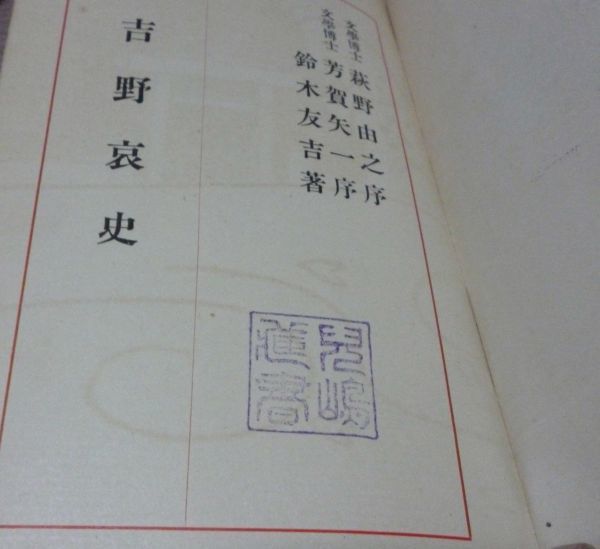 文學博士 萩野由之序
文學博士 芳賀矢一序
鈴木友吉著
吉野哀史
児嶋
蔵書